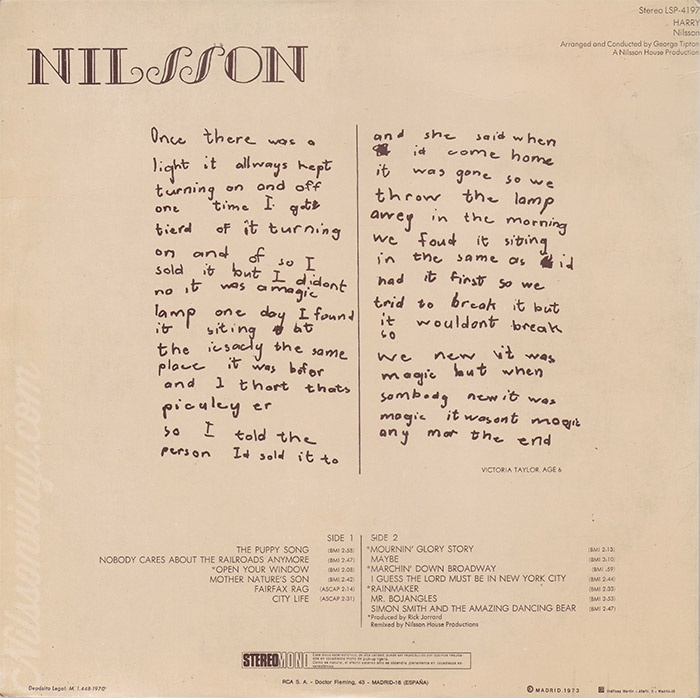 Stereo LSP-4197
HARRY
Nilsson
Arranged and Conducted by George Tipton
A Nilsson House Production
NILSSON
Once there was a
light it allways kept
turning on and off
one time I got
tierd of it turning
on and of so I
sold it but I didont
no it was a magic
lamp one day I found
it siting bt
the icsacly the same
place it was befor
and I thort thats
piculey er
so I told the
person Id sold it to
and she said when
id come home
it was gone so we
throw the lamp
awey in the morning
we foud it siting
in the same as id
had it first so we
trid to break it but
it wouldont break
so
we new it was
magic but when
sombody new it was
magic it wasont magic
any mor the end
VICTORIA TAYLOR, AGE 6
SIDE 1
THE PUPPY SONG (BMI 2:58)
NOBODY CARES ABOUT THE RAILROADS ANYMORE (BMI 2:47)
*OPEN YOUR WINDOW (BMI 2:08)
MOTHER NATURE'S SON (BMI 2:42)
FAIRFAX RAG (ASCAP 2:14)
CITY LIFE (ASCAP 2:31)
SIDE 2
*MOURNIN' GLORY STORY (BMI 2:13)
MAYBE (BMI 3:10)
*MARCHIN' DOWN BROADWAY (BMI :59)
I GUESS THE LORD MUST BE IN NEW YORK CITY (BMI 2:44)
*RAINMAKER (BMI 2:33)
MR. BOJANGLES (BMI 3:53)
SIMON SMITH AND THE AMAZING DANCING BEAR (BMI 2:47)
*Produced by Rick Jarrard
Remixed by Nilsson House Productions
STEREO MONO
Depósito Legal: M. 1.448-1970
RCA S. A. - Doctor Fleming, 43 - MADRID-16 (ESPAÑA)
© MADRID 1973